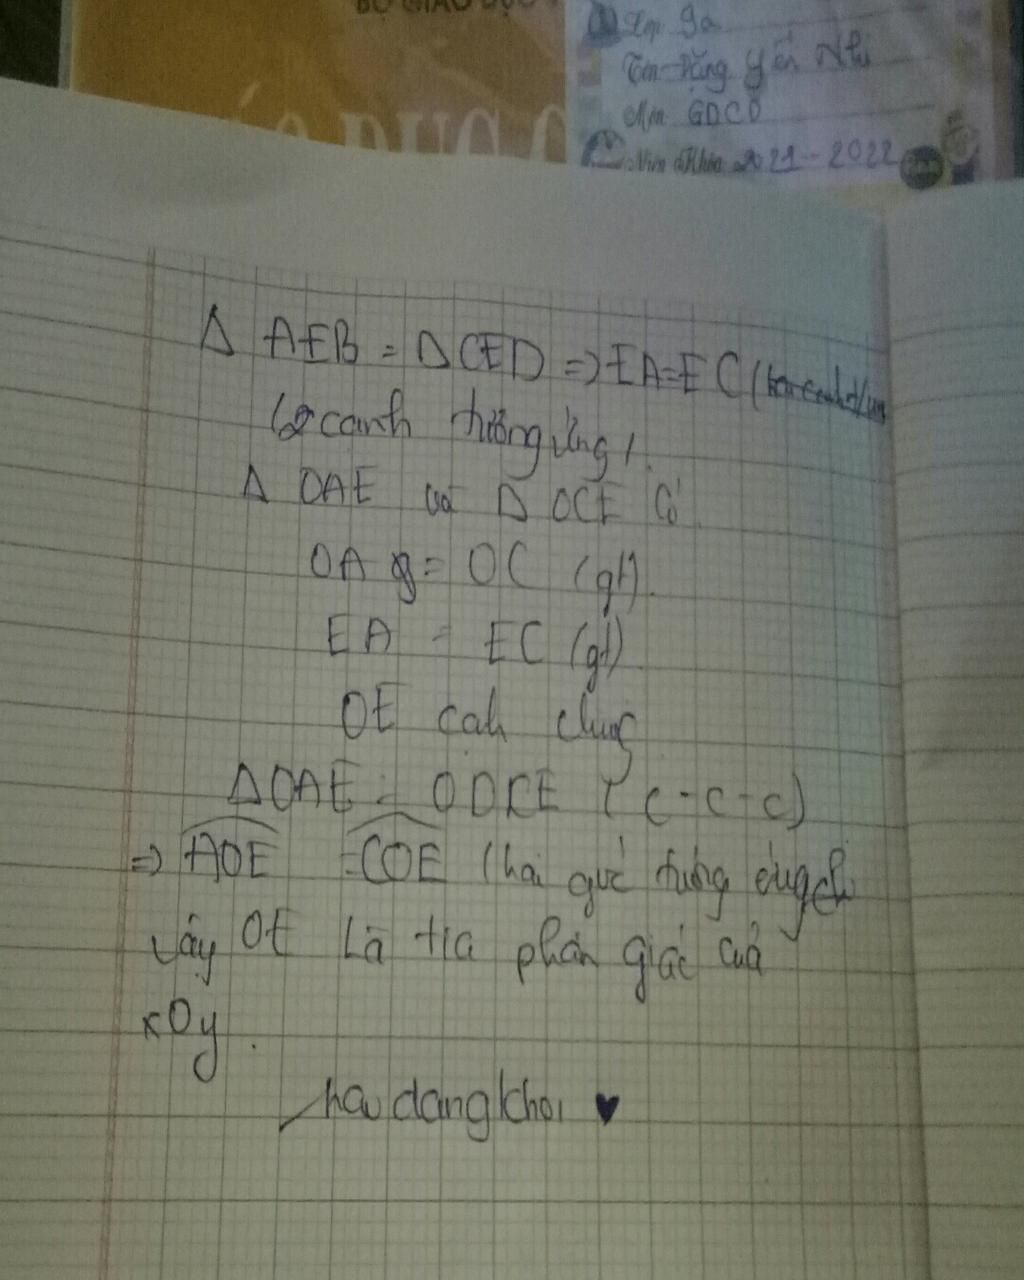 BỘ GIÁO DỤC
Lớp 9a
Tên Đặng Yến Nhi
Môn GDCD
Niên Khóa 2021-2022
DỤC C
Δ AEB = Δ CED => EA = EC (
(2 canh tương ứng).
Δ OAE và Δ OCE Có
OA = OC (gt).
EA = EC (gt)
OE cah chug
Δ OAE = ODCE (c-c-c)
=> AOE = COE (hai góc tương ứng
Vậy OE Là tia phân giác cuả
xOy.
haudangkhoi ♥